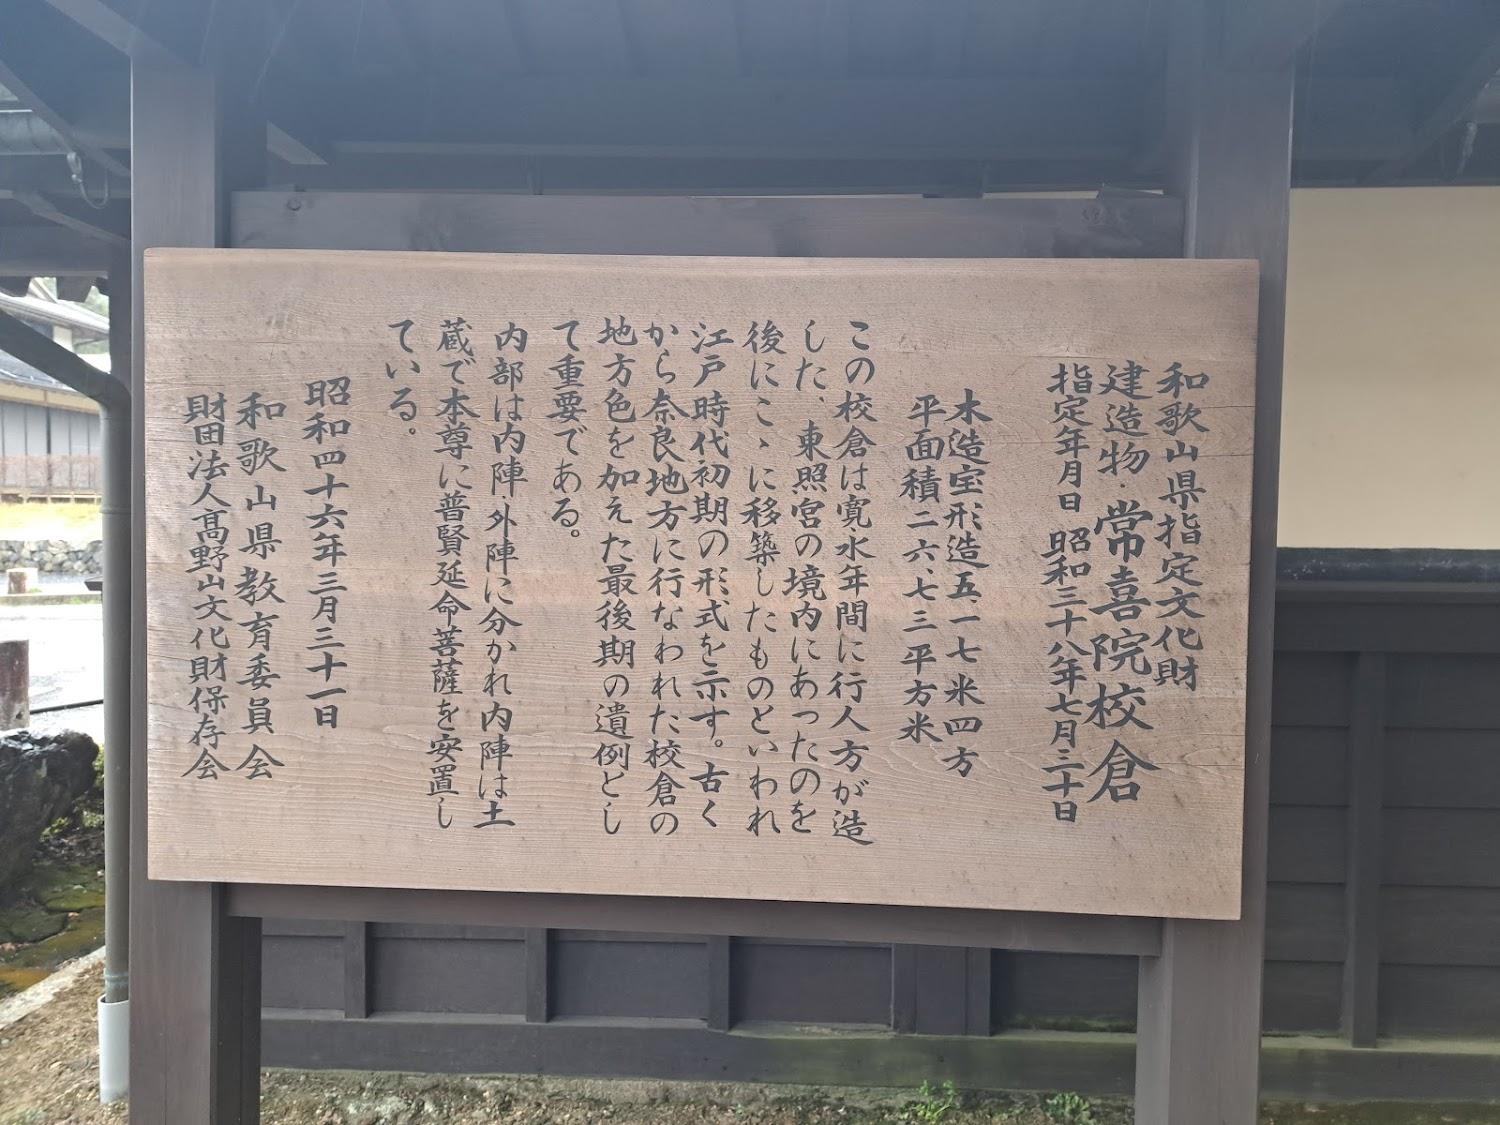 和歌山県指定文化財
建造物・常喜院校倉
指定年月日 昭和三十八年七月三十日
木造宝形造五・一七米四方
平面積二六、七三平方米
この校倉は寛永年間に行人方が造
した、東照宮の境内にあったのを
後にこゝに移築したものといわれ
江戸時代初期の形式を示す。古く
から奈良地方に行なわれた校倉の
地方色を加えた最後期の遺例とし
て重要である。
内部は内陣外陣に分かれ内陣は土
蔵で本尊に普賢延命菩薩を安置し
ている。
昭和四十六年三月三十一日
和歌山県教育委員会
財団法人高野山文化財保存会